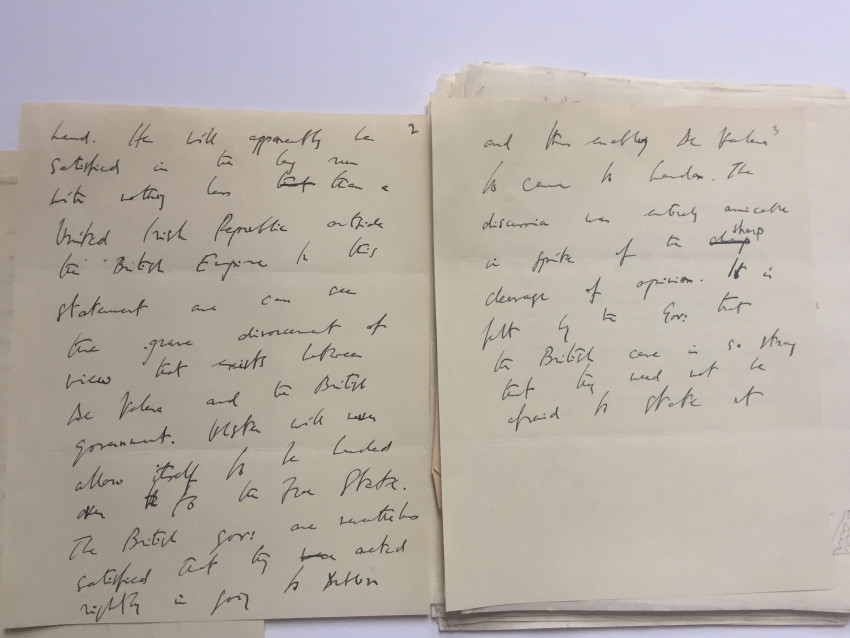 2
hand. He will apparently be
satisfied in the long run
with nothing less that than a
United Irish Republic outside
the British Empire. In this
statement one can see
the grave divorcement of
view that exists between
De Valera and the British
government. Ulster will never
allow itself to be handed
over to the Free State.
The British gov: are nevertheless
satisfied that they were acted
rightly in going to Dublin
3
and thus enabling De Valera
to come to London. The
discussion was entirely amicable
in spite of the sharp
cleavage of opinion. It is
felt by the Gov: that
the British case is so strong
that they need not be
afraid to state it